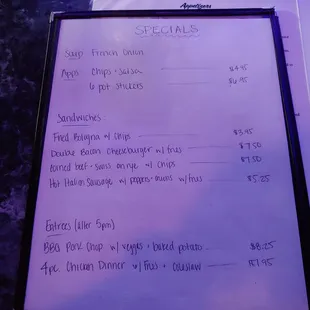 Appetizers
SPECIALS
Soup French Onion
Apps Chips - Salsa $4.95
6 pot stickers $6.95
Sandwiches
Fried Bologna w/ chips $3.95
Double Bacon Cheeseburger w/ fries $7.50
Corned beef - swiss on rye w/ chips $7.50
Hot Italian Sausage w/ peppers - onions w/ fries $5.25
Entrees (After 5pm)
BBQ Pork Chop w/ veggies + baked potato $8.25
4pc. Chicken Dinner w/ fries + coleslaw $7.95